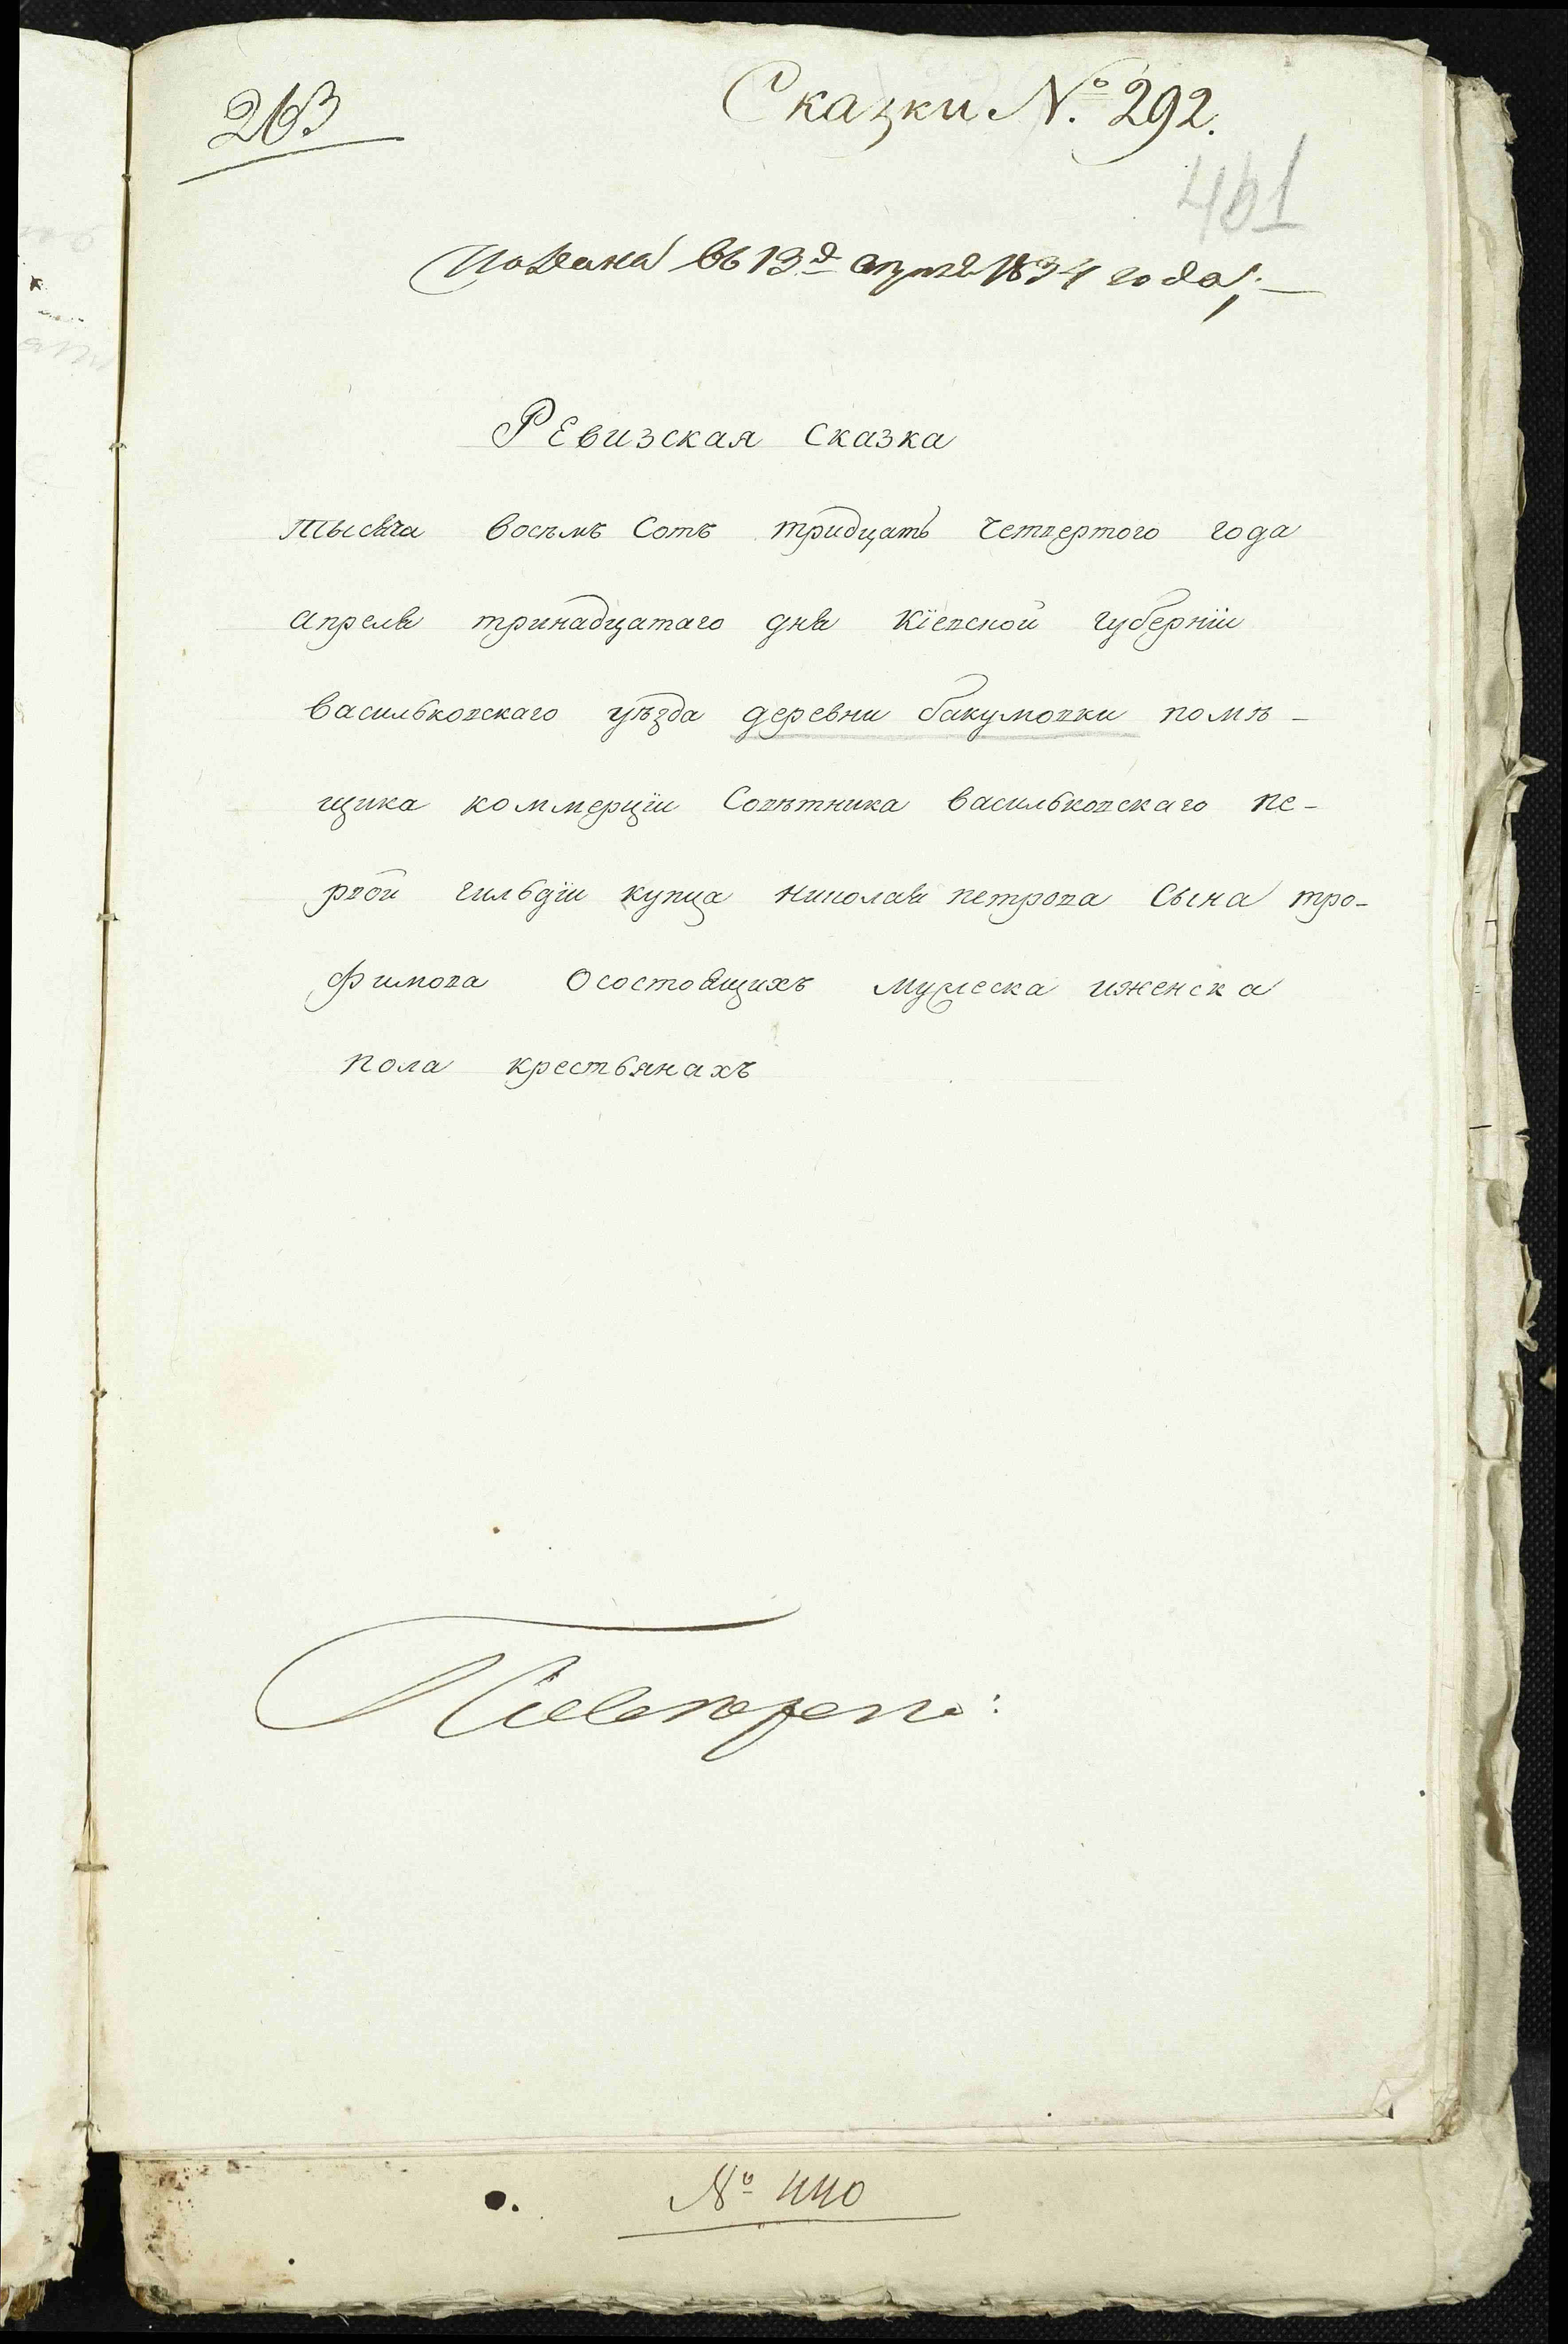 263
Сказки № 292.
461
Подана въ 13 д апреля 1834 года;
Ревизская сказка
тысяча восѣмъ Сотъ тридцать четвертого года
апреля тринадцатаго дня Кїевской губернїи
васильковскаго уѣзда деревни бакумовки помѣ-
щика коммерцїи Совѣтника васильковскаго пе-
рвой гильдїи купца николая петрова Сына тро-
фимова Осостоящихъ мужеска иженска
пола крестьянахъ
№ 440